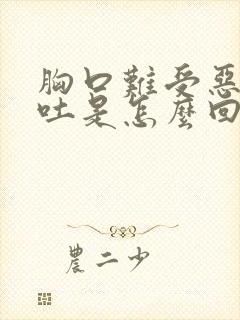 胸口難受惡
吐是怎麼回
農二少